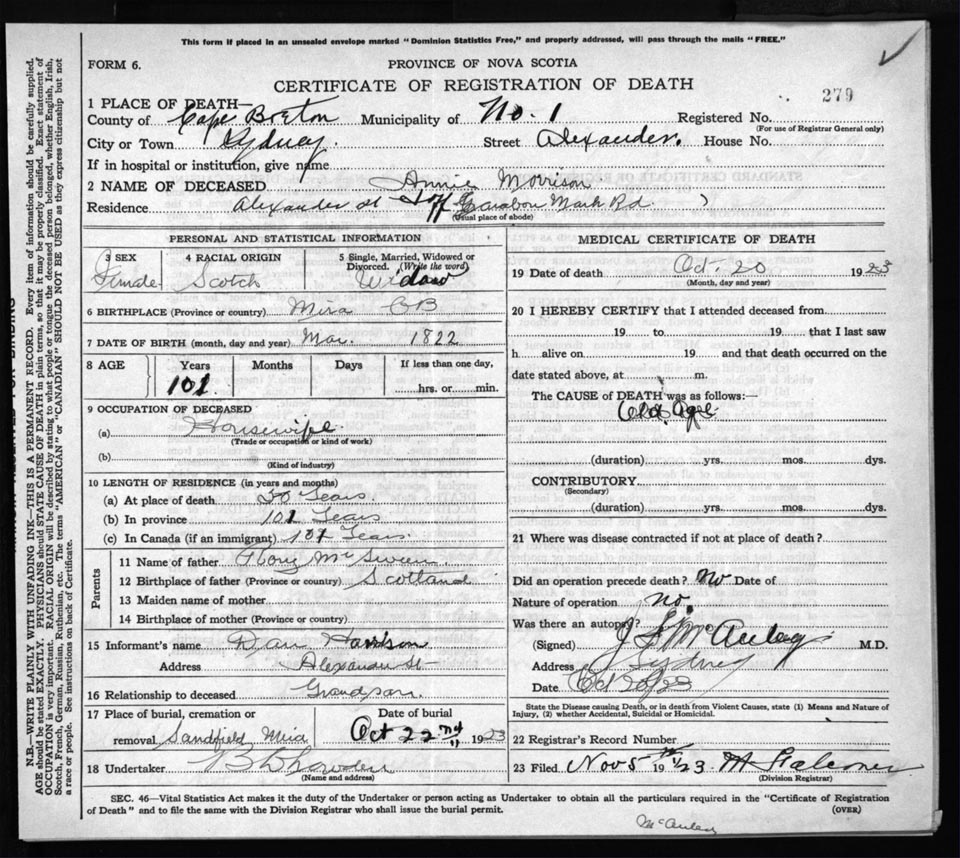 This form if placed in an unsealed envelope marked "Dominion Statistics Free," and properly addressed, will pass through the mails "FREE."
FORM 6.
PROVINCE OF NOVA SCOTIA
CERTIFICATE OF REGISTRATION OF DEATH
279
1 PLACE OF DEATH—
County of Cape Breton Municipality of No. 1 Registered No.
(For use of Registrar General only)
City or Town Sydney. Street Alexander. House No.
If in hospital or institution, give name
2 NAME OF DECEASED Annie Morrison
Residence Alexander St off Rd.
(Usual place of abode)
PERSONAL AND STATISTICAL INFORMATION
3 SEX 4 RACIAL ORIGIN 5 Single, Married, Widowed or Divorced. (Write the word)
Female Scotch Widow
6 BIRTHPLACE (Province or country) Mira CB
7 DATE OF BIRTH (month, day and year) Mar. 1822
8 AGE Years Months Days If less than one day,
101 hrs. or min.
9 OCCUPATION OF DECEASED
(a) Housewife
(Trade or occupation or kind of work)
(b)
(Kind of industry)
10 LENGTH OF RESIDENCE (in years and months)
(a) At place of death 50 Years.
(b) In province 101 Years
(c) In Canada (if an immigrant) 101 Years.
Parents
11 Name of father Rory McSwain
12 Birthplace of father (Province or country) Scotland
13 Maiden name of mother
14 Birthplace of mother (Province or country)
15 Informant's name Dan
Address Alexander St
16 Relationship to deceased Grandson.
17 Place of burial, cremation or removal Sandfield, Mira
Date of burial Oct 22nd 1923
18 Undertaker
(Name and address)
MEDICAL CERTIFICATE OF DEATH
19 Date of death Oct. 20 1923
(Month, day and year)
20 I HEREBY CERTIFY that I attended deceased from
19 to 19 that I last saw
h alive on 19 and that death occurred on the
date stated above, at m.
The CAUSE of DEATH was as follows:—
Old Age
(duration) yrs. mos. dys.
CONTRIBUTORY
(Secondary)
(duration) yrs. mos. dys.
21 Where was disease contracted if not at place of death?
Did an operation precede death? no Date of
Nature of operation no.
Was there an autopsy?
(Signed) McAulay M.D.
Address Sydney
Date Oct 20/23
State the Disease causing Death, or in death from Violent Causes, state (1) Means and Nature of Injury, (2) whether Accidental, Suicidal or Homicidal.
22 Registrar's Record Number
23 Filed Nov 5th 1923
(Division Registrar)
SEC. 46—Vital Statistics Act makes it the duty of the Undertaker or person acting as Undertaker to obtain all the particulars required in the "Certificate of Registration
of Death" and to file the same with the Division Registrar who shall issue the burial permit.
(OVER)
McAulay
N.B.—WRITE PLAINLY WITH UNFADING INK—THIS IS A PERMANENT RECORD. Every item of information should be carefully supplied.
AGE should be stated EXACTLY. PHYSICIANS should STATE CAUSE OF DEATH in plain terms, so that it may be properly classified. Exact statement of
OCCUPATION is very important. RACIAL ORIGIN will be described by stating to what people or tongue the deceased person belonged, whether English, Irish,
Scotch, French, German, Russian, Ruthenian, etc. The terms "AMERICAN" or "CANADIAN" SHOULD NOT BE USED as they express citizenship but not
a race or people. See instructions on back of Certificate.